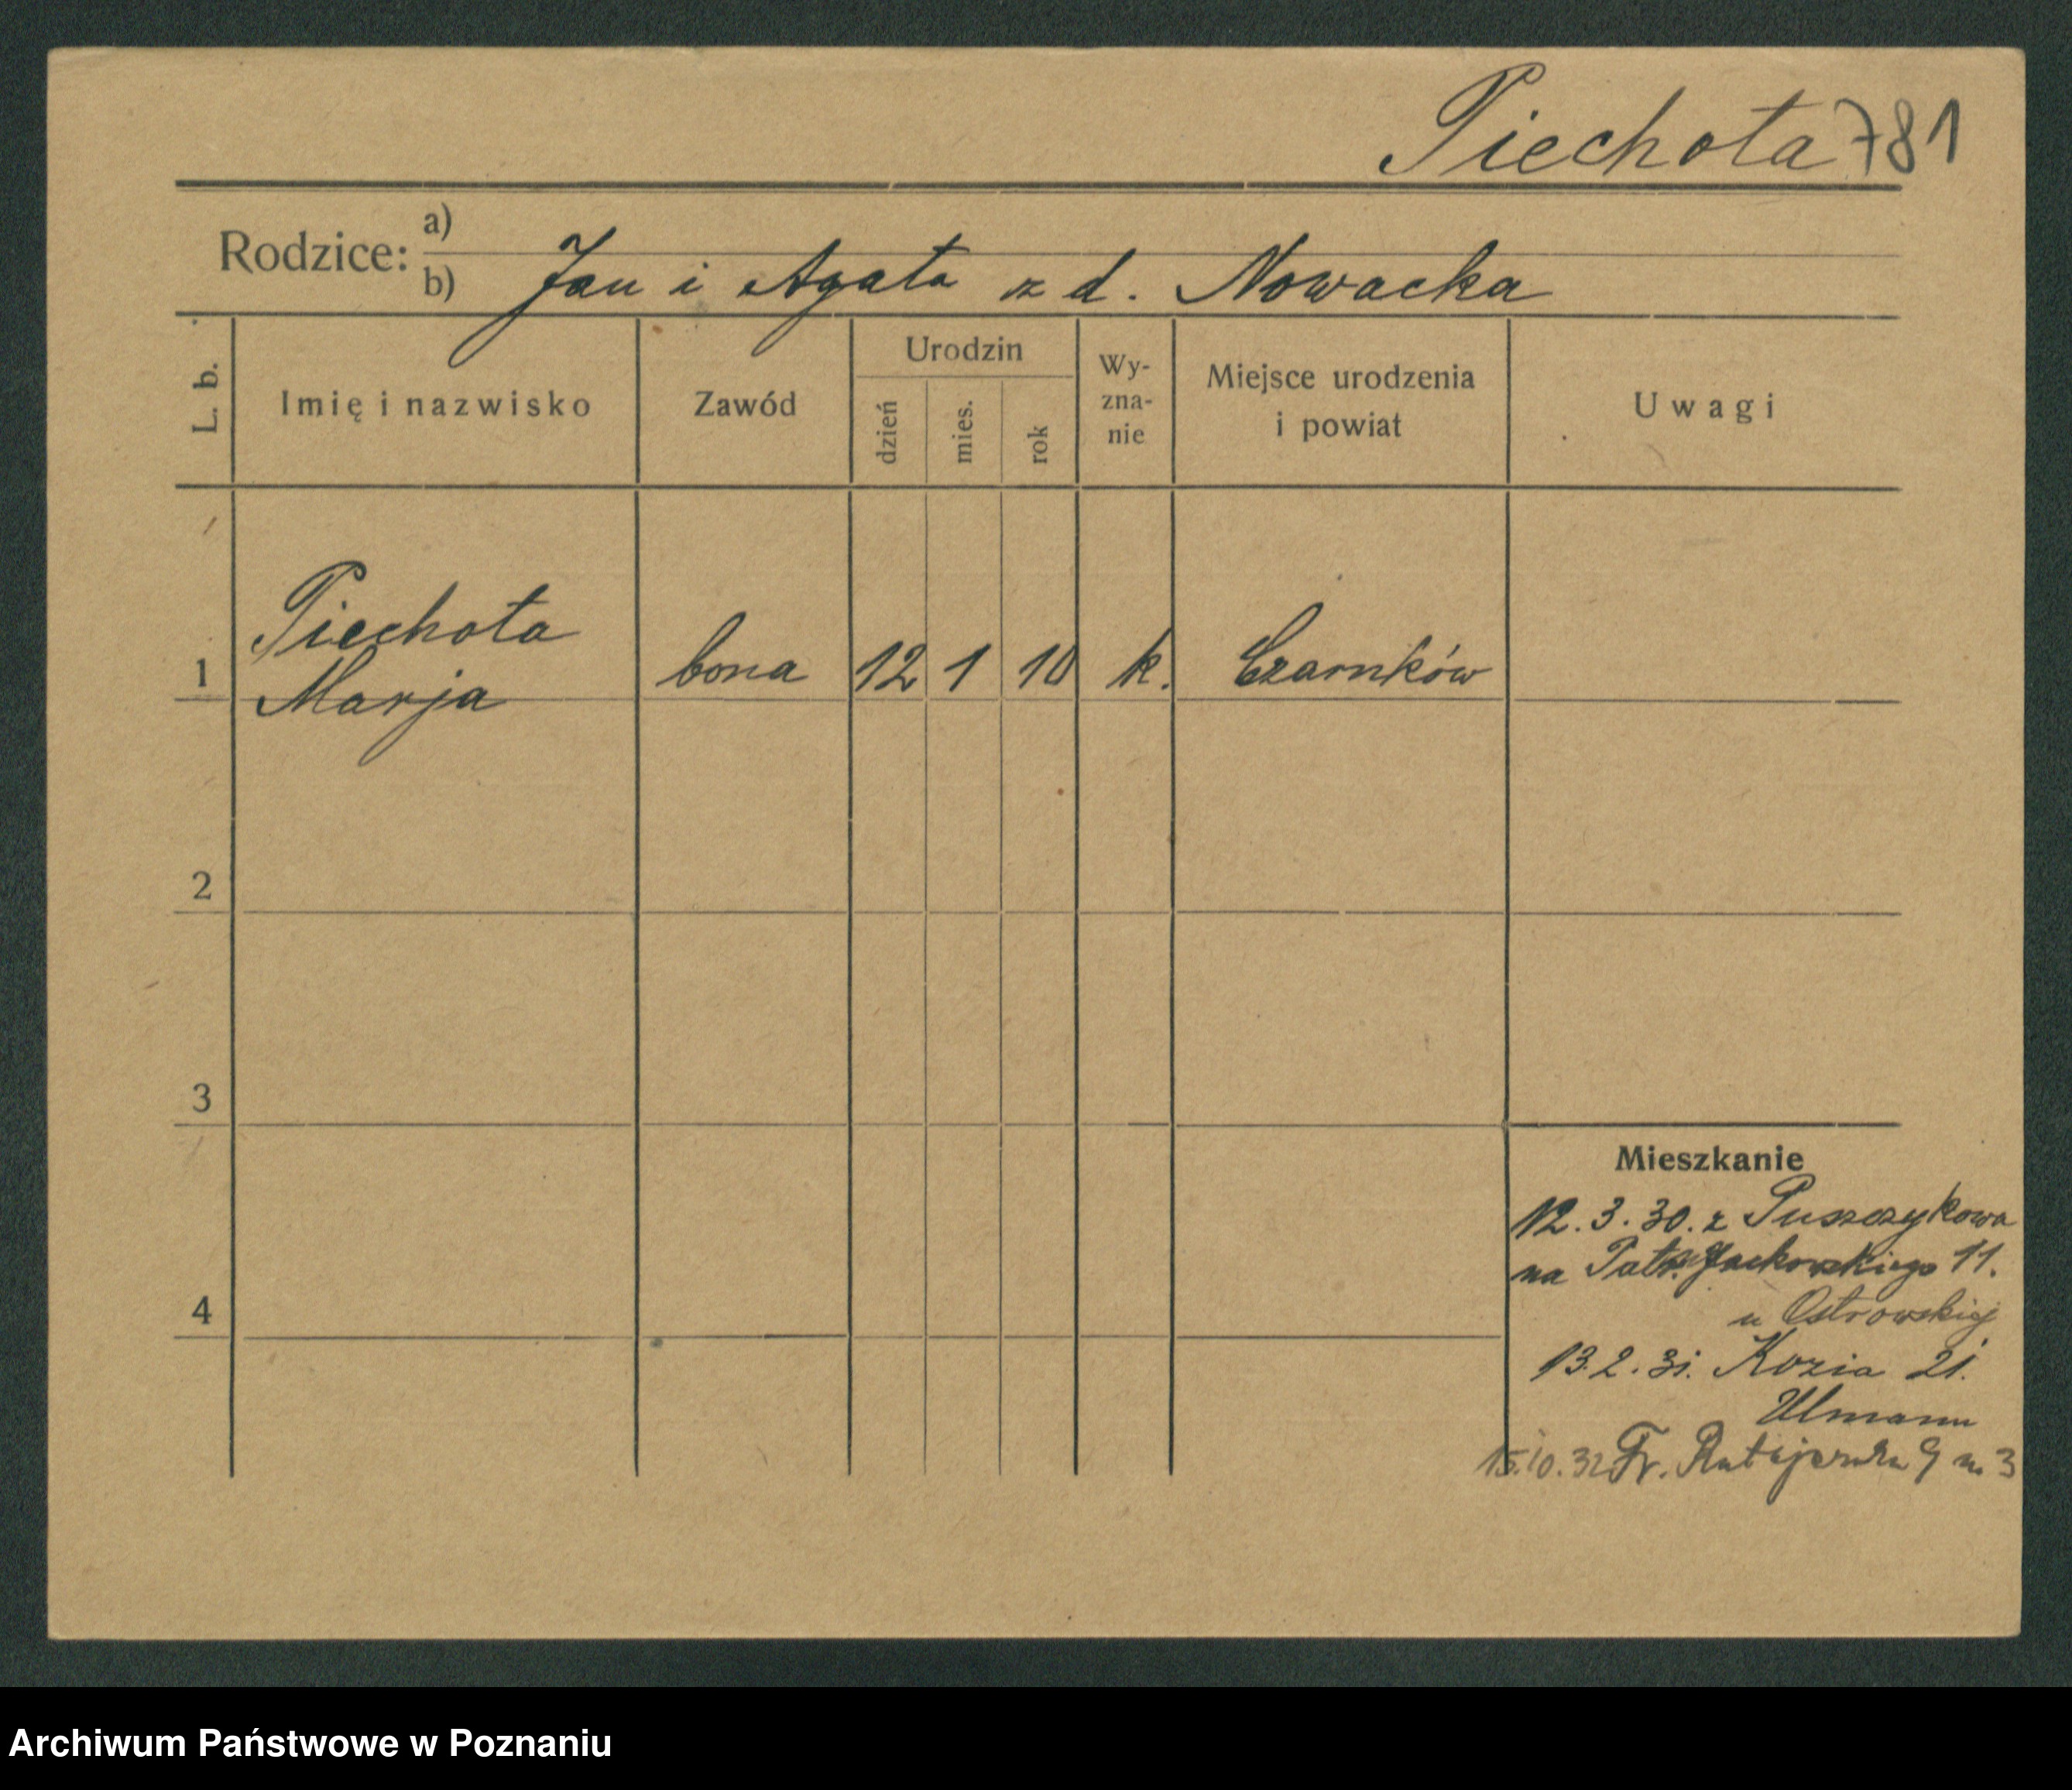 Piechota 781
Rodzice: a)
b) Jan i Agata z d. Nowacka
L. b.
Imię i nazwisko
Zawód
Urodzin
dzień
mies.
rok
Wy-
zna-
nie
Miejsce urodzenia
i powiat
Uwagi
Piechota
1 Marja bona 12 1 10 k. Czarnków
2
3
4
Mieszkanie
12.3.30. z Puszczykowa
na Patr. Jackowskiego 11.
u Ostrowskiej
13.2.31. Kozia 21.
Ulmann
15.10.32 Fr. Ratajczaka 9 m 3
Archiwum Państwowe w Poznaniu